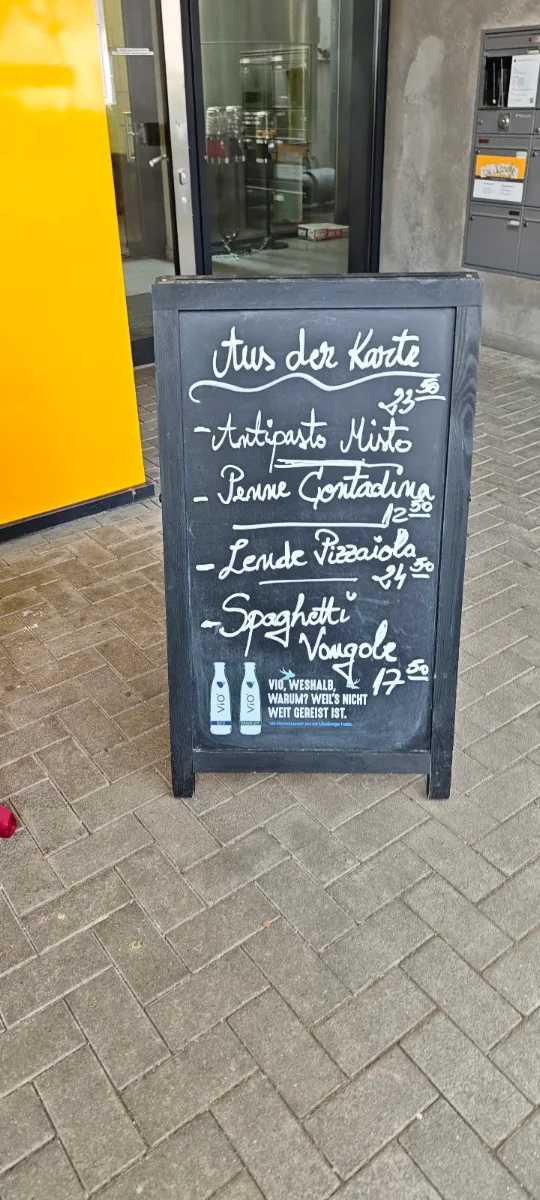 Aus der Karte
23 50
- Antipasto Misto
- Penne Contadina
12 50
- Lende Pizzaiola
24 50
- Spaghetti
Vongole
17 50
ViO
ViO
VIO, WESHALB,
WARUM? WEIL'S NICHT
WEIT GEREIST IST.